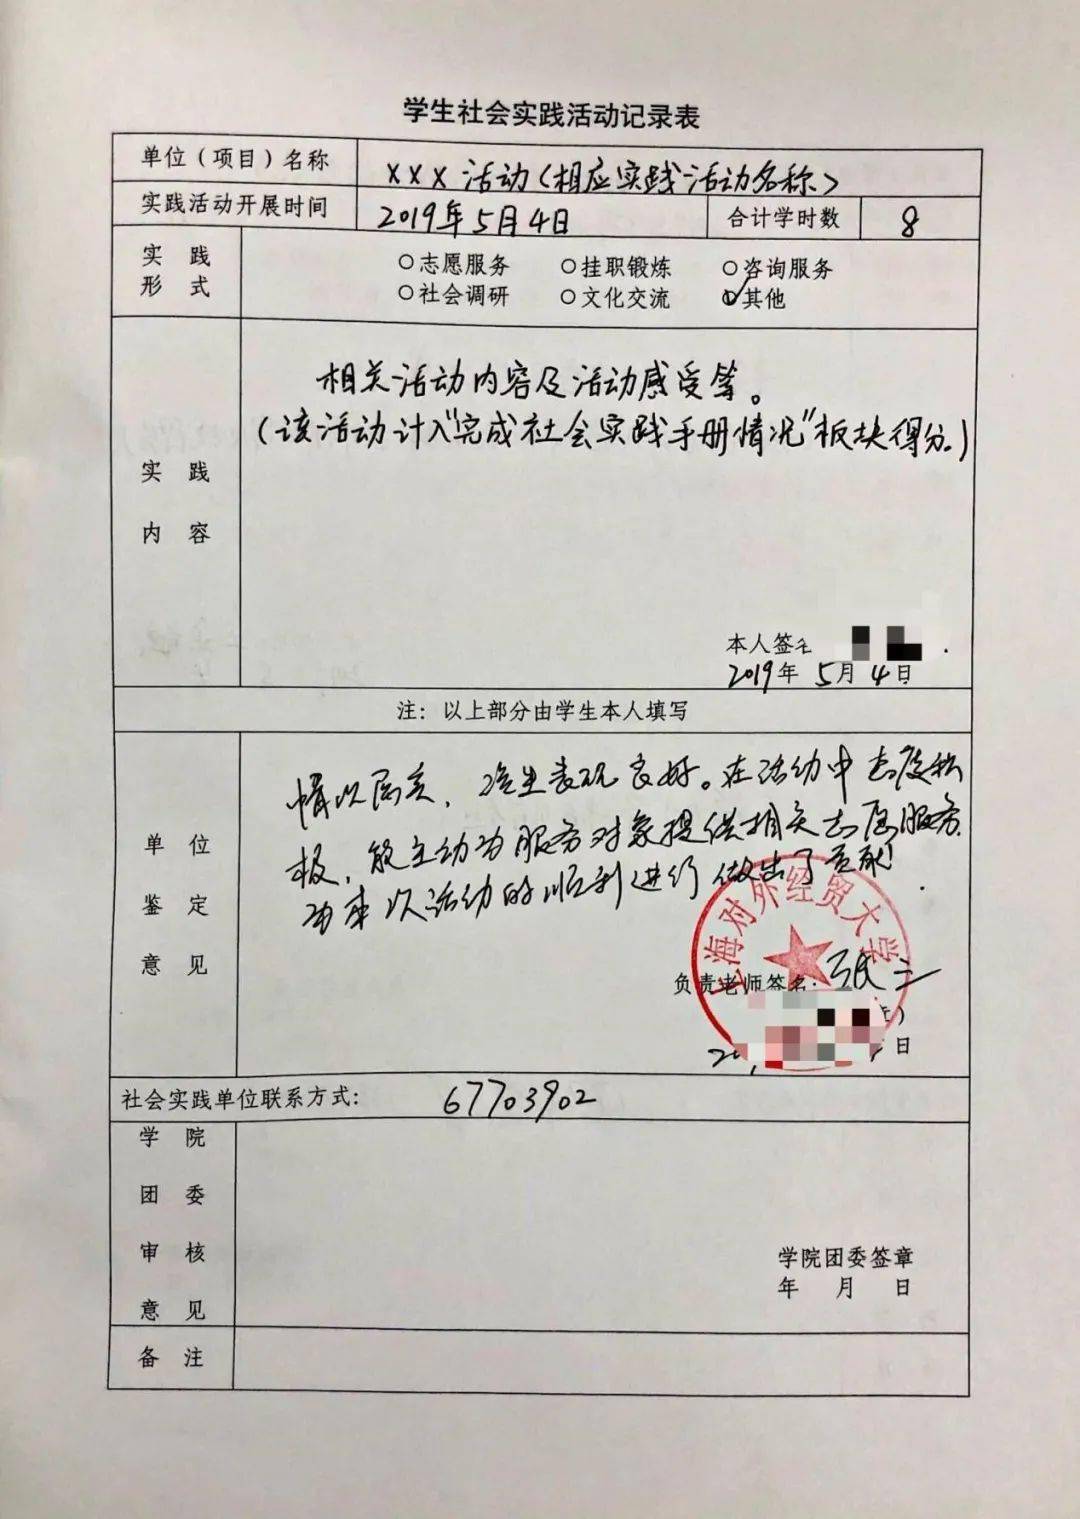 学生社会实践活动记录表
单位（项目）名称 xxx 活动（相应实践活动名称）
实践活动开展时间 2019年5月4日 合计学时数 8
实践形式
○志愿服务 ○挂职锻炼 ○咨询服务
○社会调研 ○文化交流 ○其他
实践内容
相关活动内容及活动感受等。
（该活动计入“完成社会实践手册情况”板块得分。）
本人签名
2019年 5月 4日
注：以上部分由学生本人填写
单位鉴定意见
情况属实，该生表现良好。在活动中态度积
极，能主动为服务对象提供相关志愿服务，
为本次活动的顺利进行做出了贡献
上海对外经贸大学
负责老师签名：张三
日
社会实践单位联系方式： 67703902
学院团委审核意见
学院团委签章
年 月 日
备注